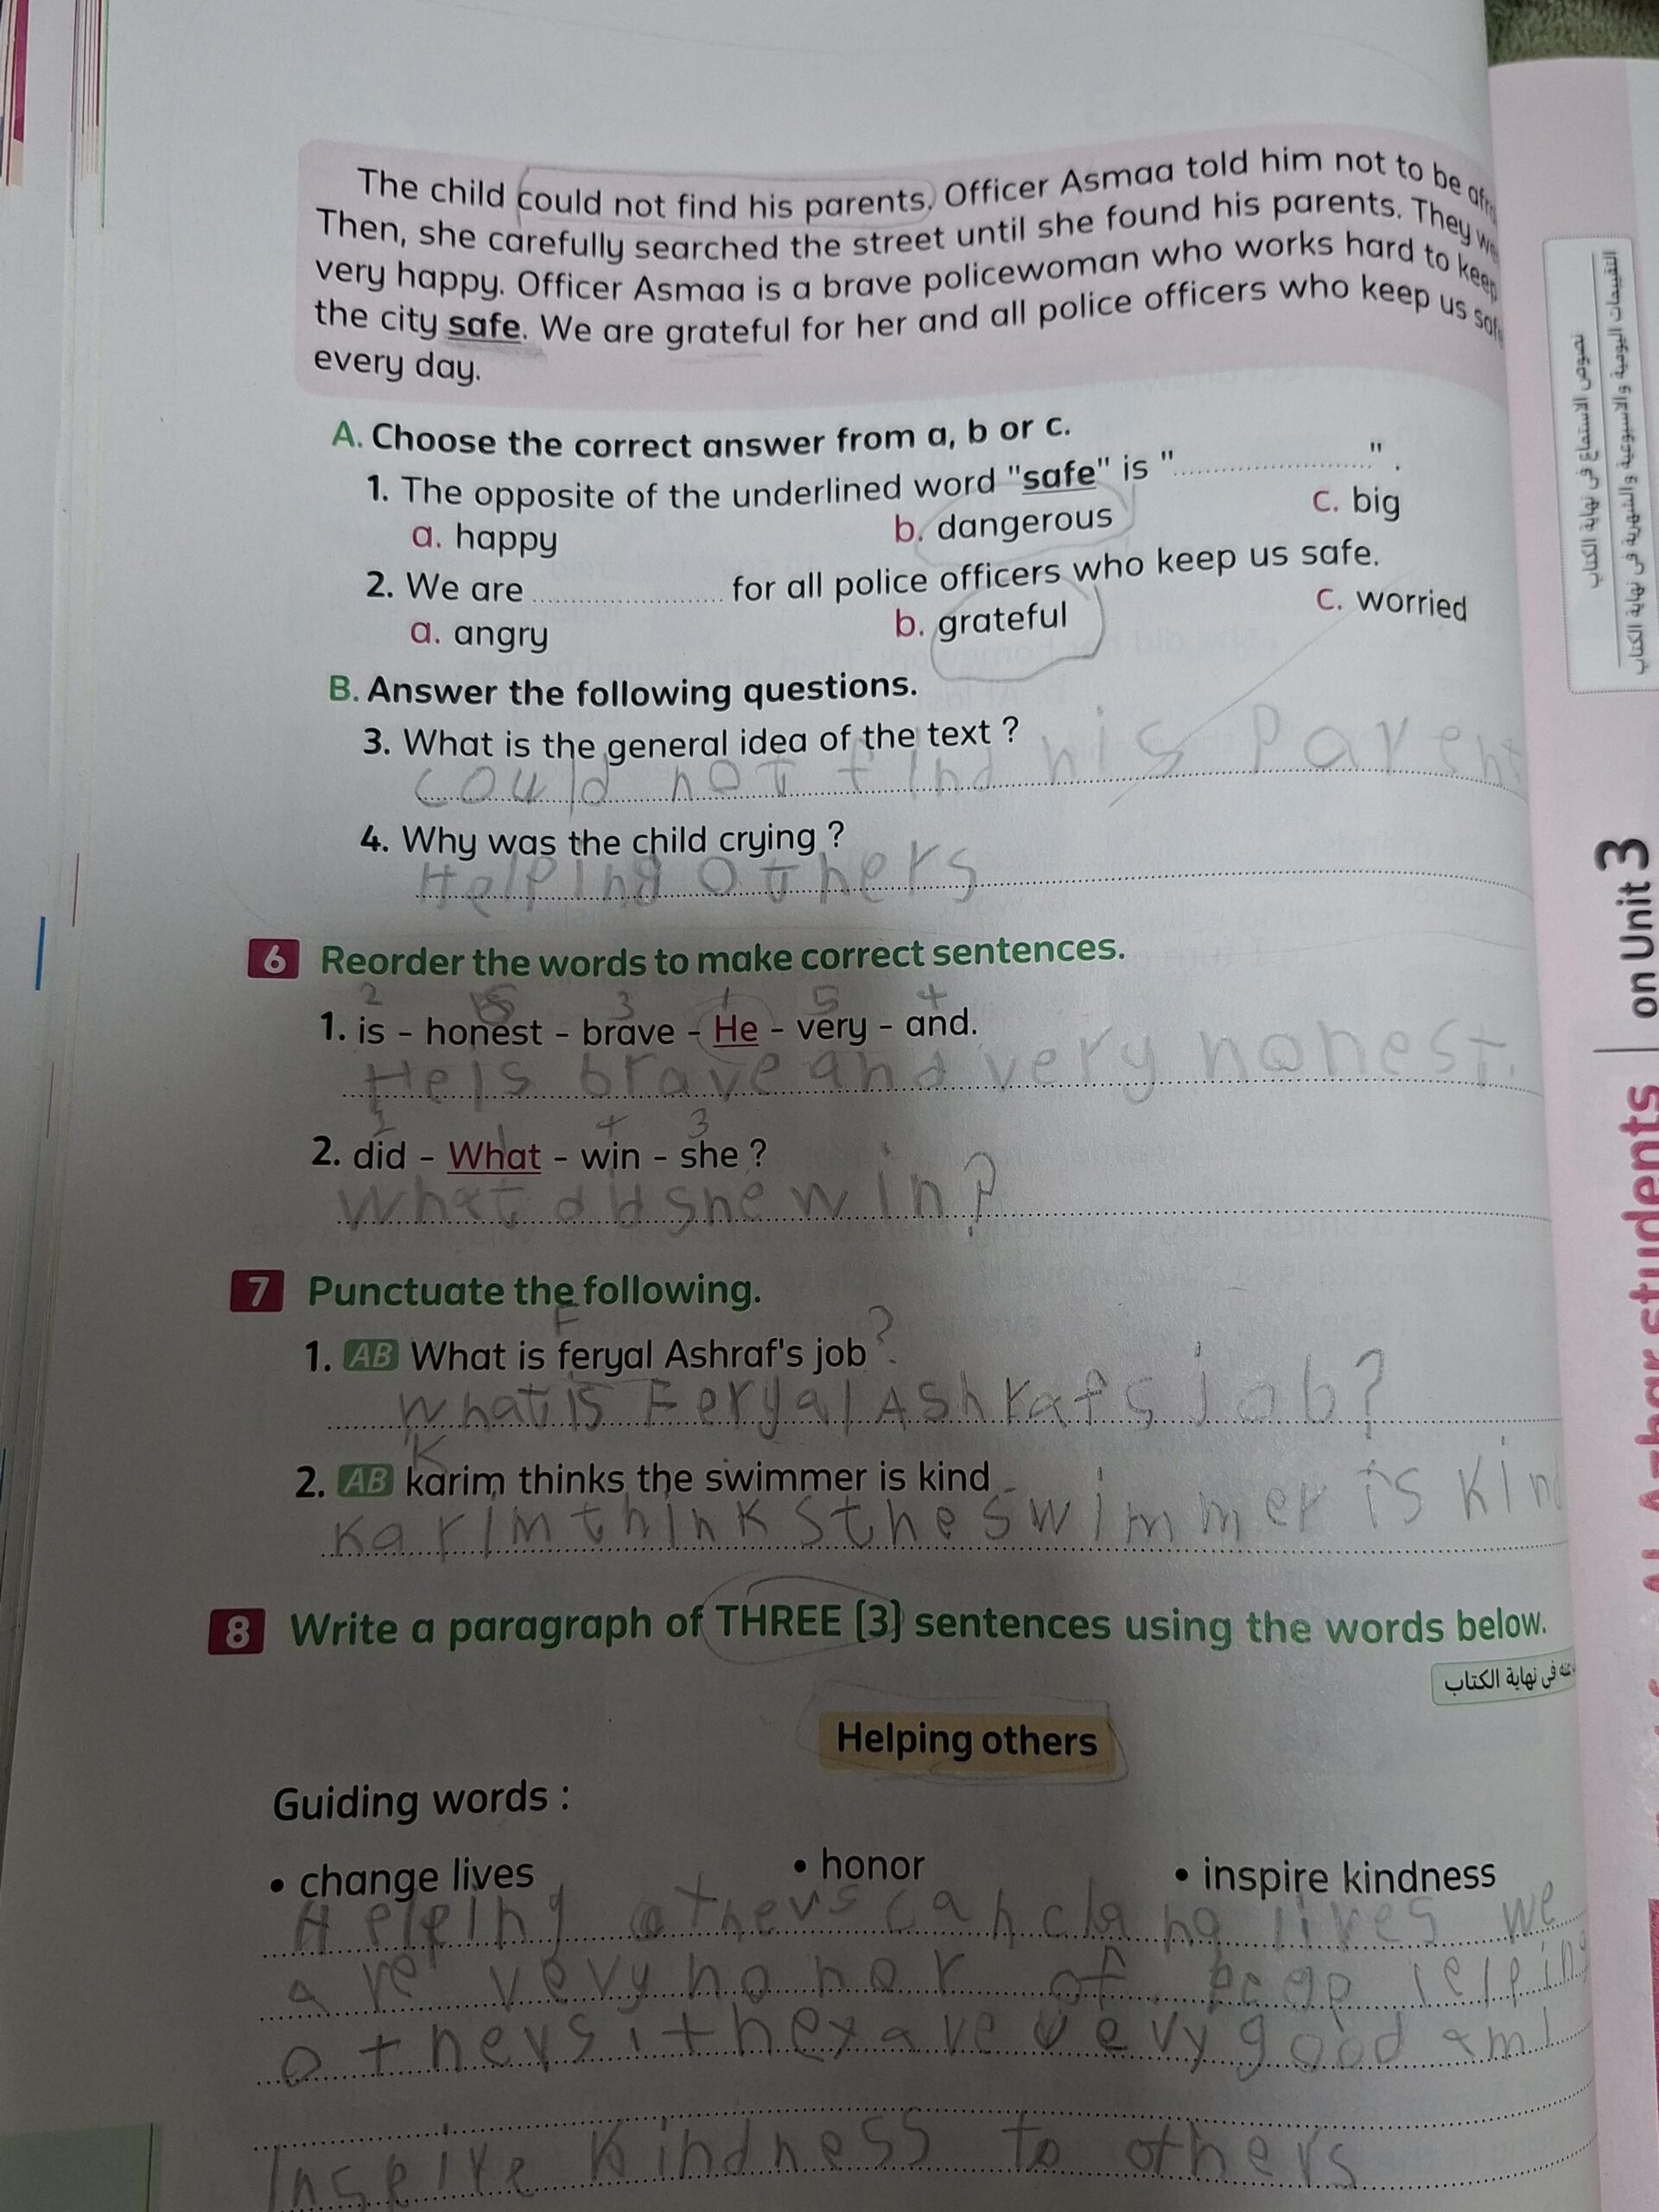 The child could not find his parents. Officer Asmaa told him not to be
Then, she carefully searched the street until she found his parents. They
very happy. Officer Asmaa is a brave policewoman who works hard to keep
the city safe. We are grateful for her and all police officers who keep us
every day.
A. Choose the correct answer from a, b or c.
1. The opposite of the underlined word "safe" is "....................".
a. happy b. dangerous c. big
2. We are .................... for all police officers who keep us safe.
a. angry b. grateful c. worried
B. Answer the following questions.
3. What is the general idea of the text ?
could not find his parent
4. Why was the child crying ?
Helping others
6 Reorder the words to make correct sentences.
2 3 1 5 4
1. is - honest - brave - He - very - and.
He is brave and very honest.
2 1 4 3
2. did - What - win - she ?
What did she win?
7 Punctuate the following.
F ?
1. AB What is feryal Ashraf's job
What is Feryal Ashrafs job?
K
2. AB karim thinks the swimmer is kind
Karim thinks the swimmer is kind
8 Write a paragraph of THREE (3) sentences using the words below.
فى نهاية الكتاب
Helping others
Guiding words :
• change lives • honor • inspire kindness
Helping others can lives we
are very honor of
others are very good
Inspire kindness to others
on Unit 3
students